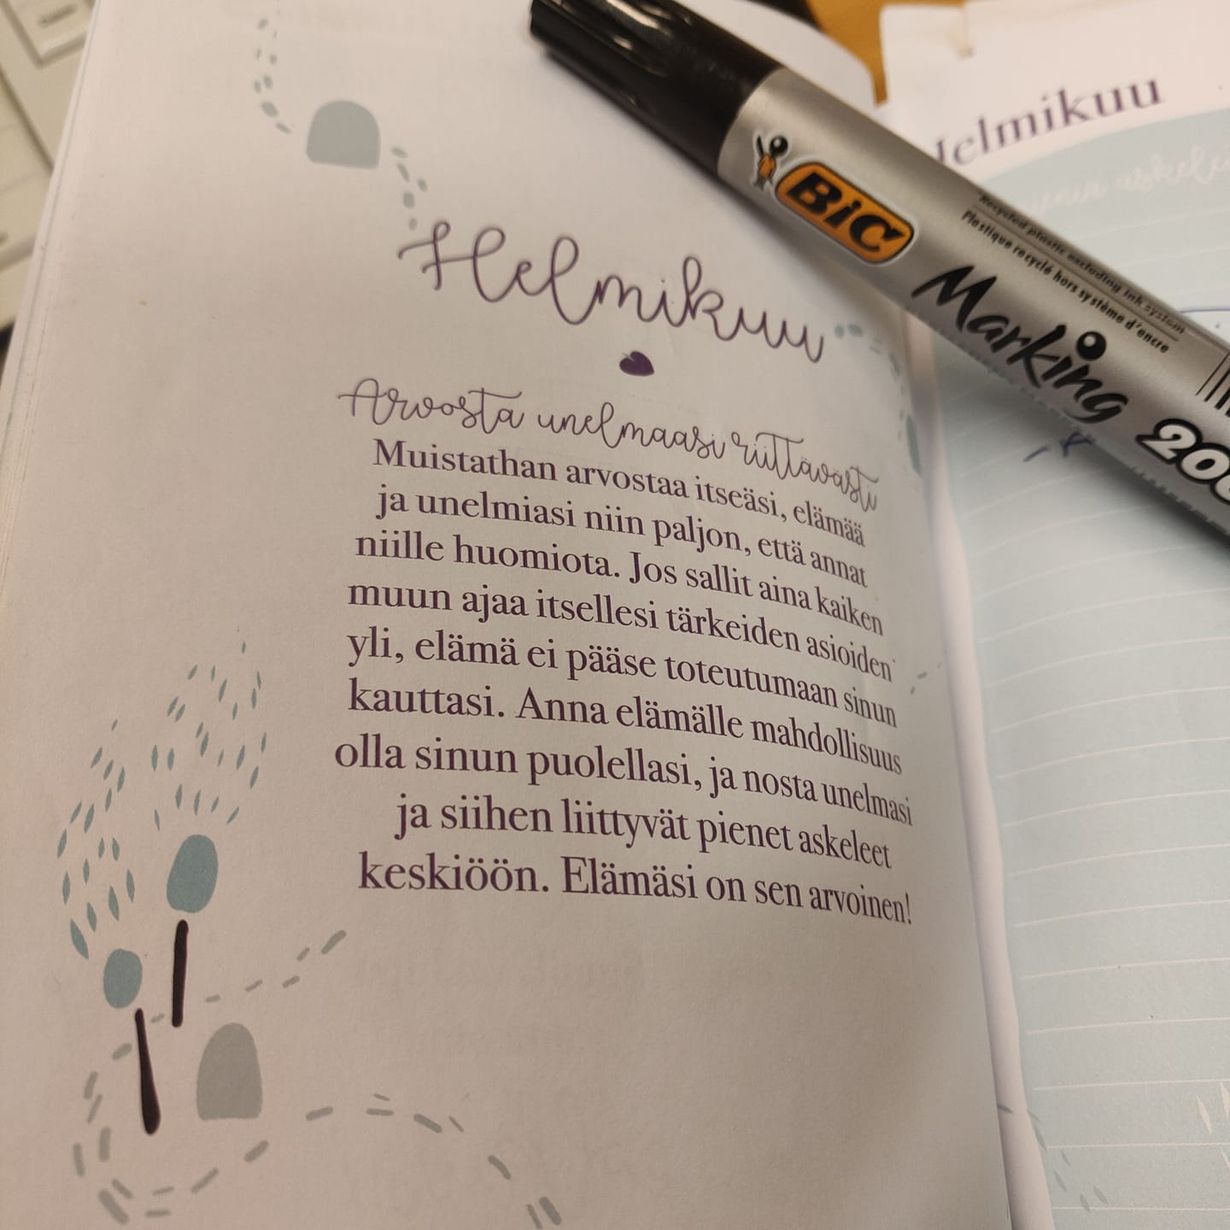 Helmikuu
Arvosta unelmaasi riittävästi
Muistathan arvostaa itseäsi, elämää
ja unelmiasi niin paljon, että annat
niille huomiota. Jos sallit aina kaiken
muun ajaa itsellesi tärkeiden asioiden
yli, elämä ei pääse toteutumaan sinun
kauttasi. Anna elämälle mahdollisuus
olla sinun puolellasi, ja nosta unelmasi
ja siihen liittyvät pienet askeleet
keskiöön. Elämäsi on sen arvoinen!
BIC
Marking 200
Recycled plastic excluding ink system
Plastique recyclé hors système d'encre
Helmikuu